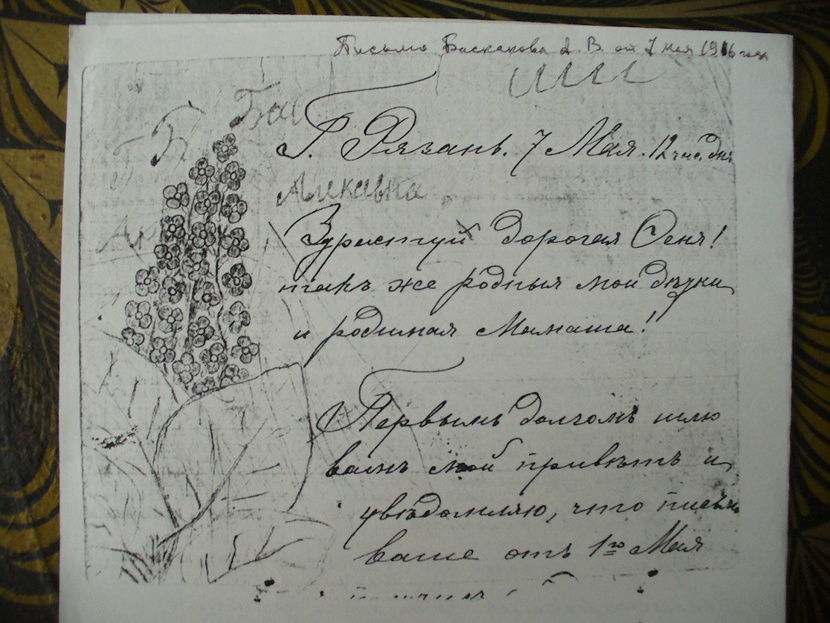 Письмо Баскакова А. В. от 7 мая 1916 г.
Г. Рязань. 7 Мая. 12 час. дня
Здраствуй дорогая Феня!
такъ же родныя мои дѣтки
и родимая Мамаша!
Первымъ долгомъ шлю
вамъ мой привѣтъ и
увѣдомляю, что письмо
ваше отъ 1го Мая